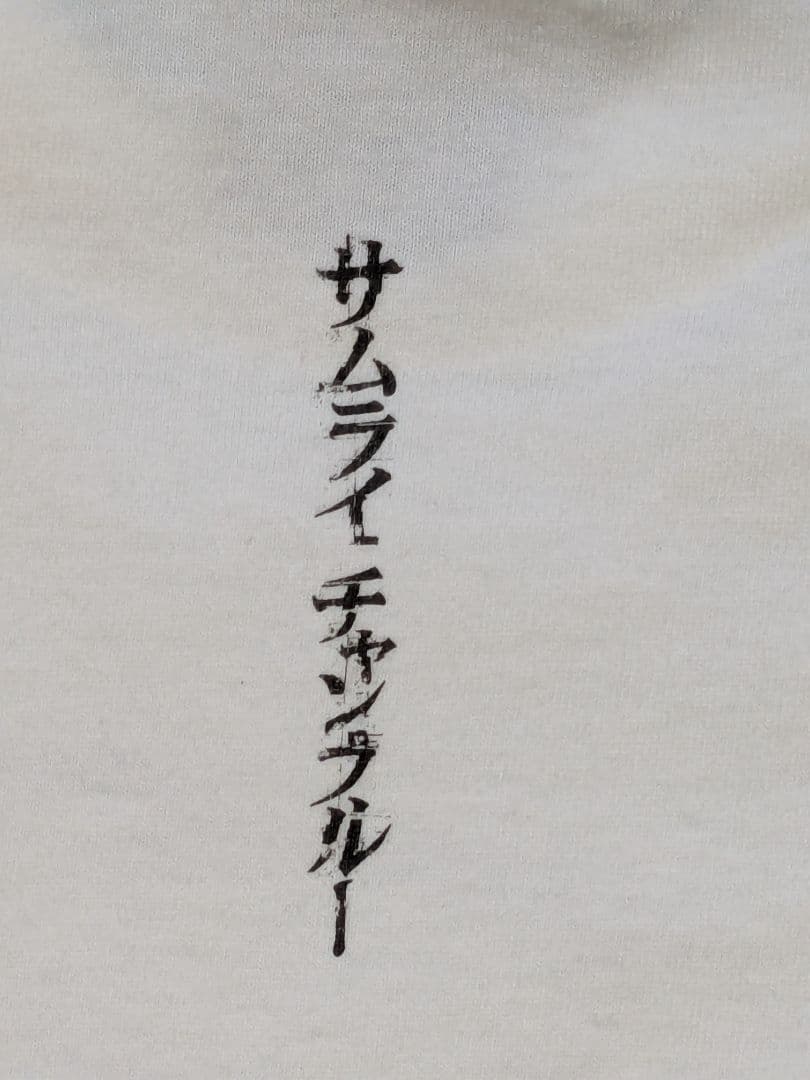 サムライ チャンプルー